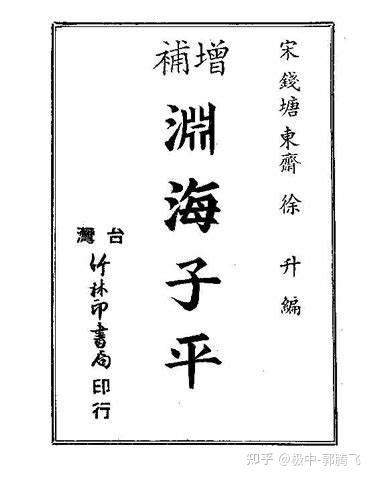 宋錢塘東齋徐升編
增補
淵海子平
台灣
竹林印書局印行
知乎 @极中-郭腾飞